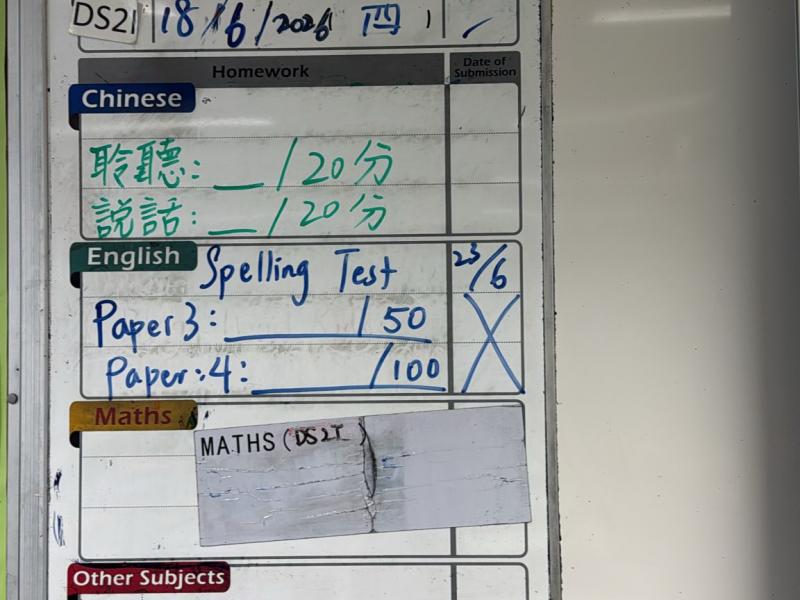 DS2I 18/6/2026 四
Homework
Date of Submission
Chinese
聆聽: __ /20分
説話: __ /20分
English
Spelling Test 23/6
Paper 3: ______ / 50
Paper:4: ______ /100
Maths
MATHS (DS2I)
Other Subjects